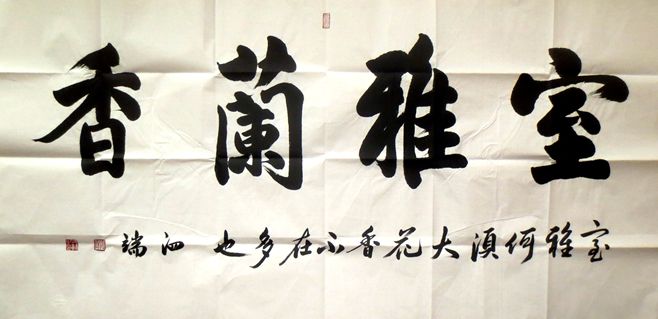 室雅蘭香
室雅何須大花香不在多也 泗端